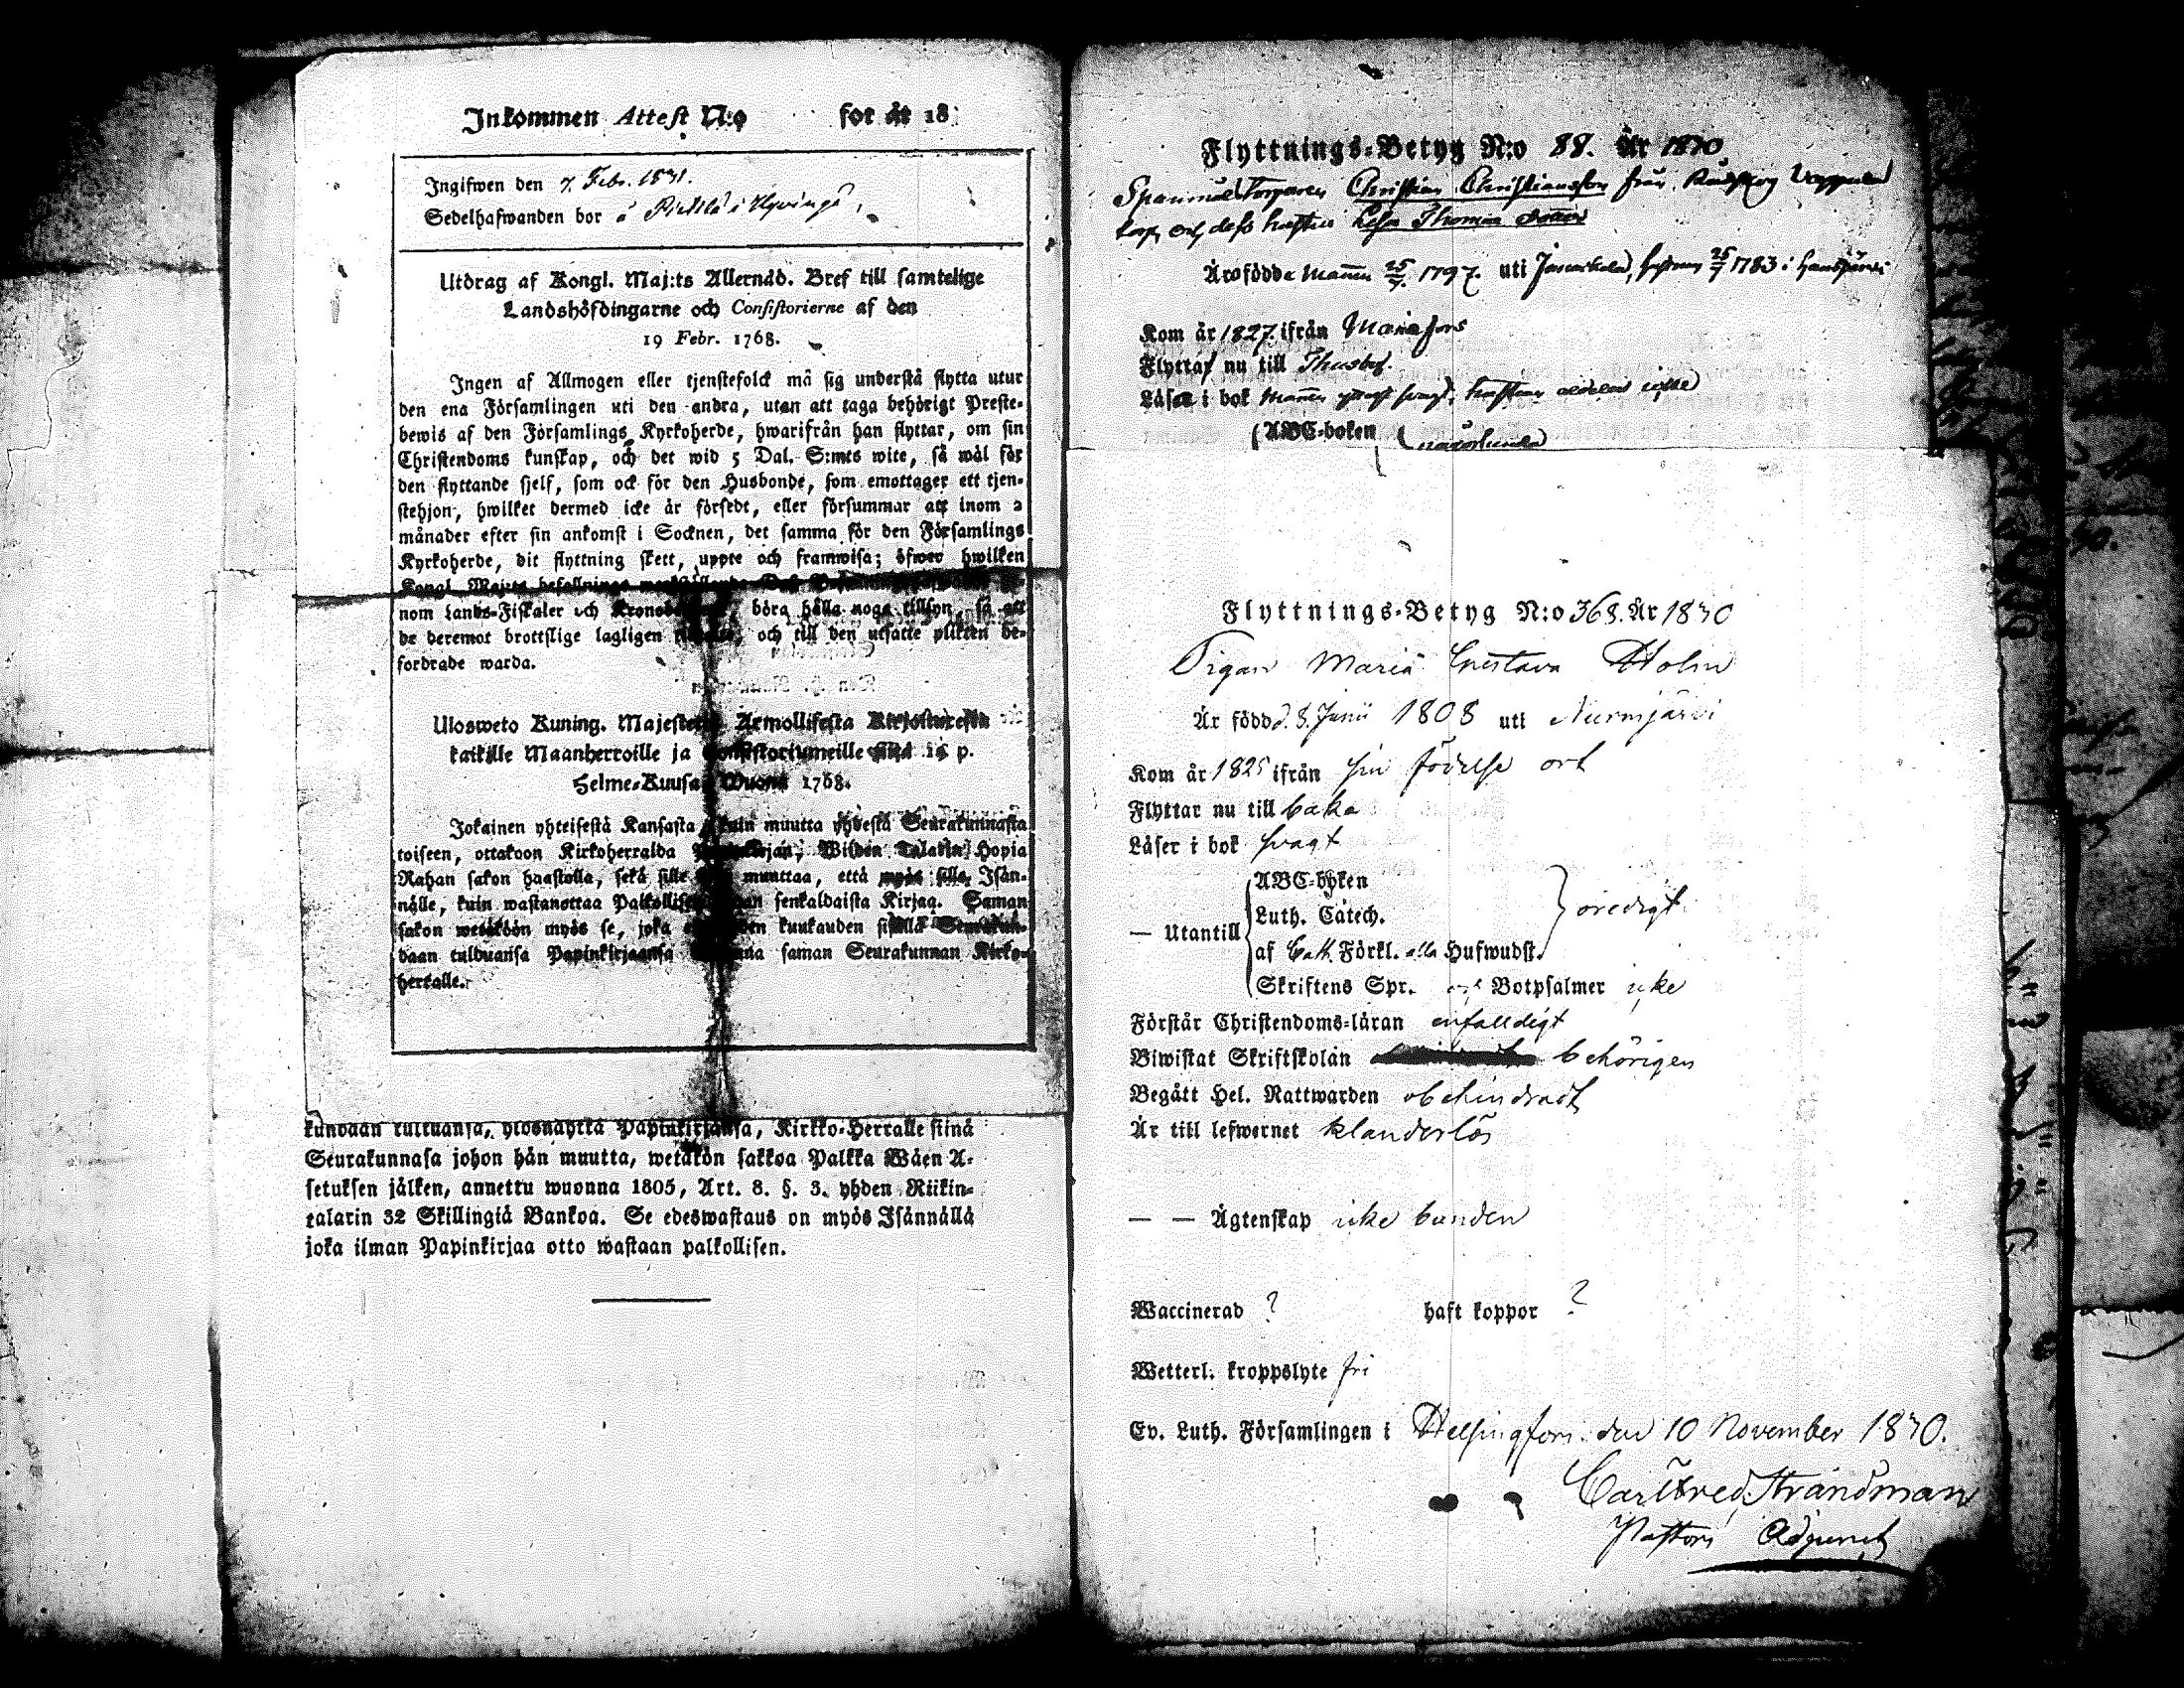 Inkommen Attest N:o for år 18
Ingifwen den 7. Febr. 1831.
Sedelhafwanden bor å i Hyvinge
Utdrag af Kongl. Maj:ts Allernåd. Bref till samtelige
Landshöfdingarne och Consistorierne af den
19 Febr. 1768.
Ingen af Allmogen eller tjenstefolck må sig understå flytta utur
den ena Församlingen uti den andra, utan att taga behörigt Preste-
bewis af den Församlings Kyrkoherde, hwarifrån han flyttar, om sin
Christendoms kunskap, och det wid 5 Dal. S:mts wite, så wäl för
den flyttande sjelf, som ock för den Husbonde, som emottager ett tjen-
stehjon, hwilket dermed icke är försedt, eller försummar att inom 2
månader efter sin ankomst i Socknen, det samma för den Församlings
Kyrkoherde, dit flyttning skett, uppte och framwisa; öfwer hwilken
Kongl. Maj:ts befallnings
nom Lands-Fiskaler och böra hålla noga tillsyn, så att
de deremot brottslige lagligen och till den utsatte plikten be-
fordrade warda.
Ulosweto Kuning. Majestetin Armollisesta Kirjoituresta
kaikille Maanherroille ja Consistoriumeille siitä 19 p.
Helme-Kuusa Wuona 1768.
Jokainen yhteisestä Kansasta kuin muutta yhdestä Seurakunnasta
toiseen, ottakoon Kirkoherralda Wiiden Talarin Hopia
Rahan sakon haastolla, sekä sille muuttaa, että myös sille Isän-
nälle, kuin wastanottaa Palkollisen senkaldaista Kirjaa. Saman
sakon wetäköön myös se, joka kuukauden sisällä Seurakun-
daan tulduansa Papinkirjaansa saman Seurakunnan Kirko-
herralle.
kundaan tultuansa, ylösnäyttä Papinkirjaansa, Kirkko-Herralle siinä
Seurakunnasa johon hän muutta, wetäkön sakkoa Palkka Wäen A-
setuksen jälken, annettu wuonna 1805, Art. 8. §. 3. yhden Riikin-
talarin 32 Skillingiä Bankoa. Se edeswastaus on myös Isännällä
joka ilman Papinkirjaa otto wastaan palkollisen.
Flyttnings-Betyg N:o 88. År 1830
Christian Christiansson från
torp och dess hustru Lesa Thomae dotter
Är födde Mannen 25/7. 1797. uti Janakkala, hustrun 25/7 1783 i Hausjärvi
Kom år 1827. ifrån Mariefors
Flyttar nu till Thusby.
Läser i bok Mannen svagt, hustrun icke
ABC-boken
Flyttnings-Betyg N:o 368. År 1830
Pigan Maria Gustava Holm
Är född d. 8. Junii 1808 uti Nurmjärvi
Kom år 1825 ifrån sin födelse ort
Flyttar nu till baka
Läser i bok svagt
ABC-boken
Luth. Catech.
— Utantill oredigt
af Catk. Förkl. alla Hufwudst.
Skriftens Spr. och Botpsalmer icke
Förstår Christendoms-läran enfalldigt
Biwistat Skriftskolan behörigen
Begått Hel. Nattwarden obehindradt
Är till lefwernet klanderlös
— — Ägtenskap icke bunden
Waccinerad ? haft koppor ?
Wetterl. kroppslyte fri
Ev. Luth. Församlingen i Helsingfors den 10 November 1830.
Carl Fred. Strandman
Pastors Adjunct